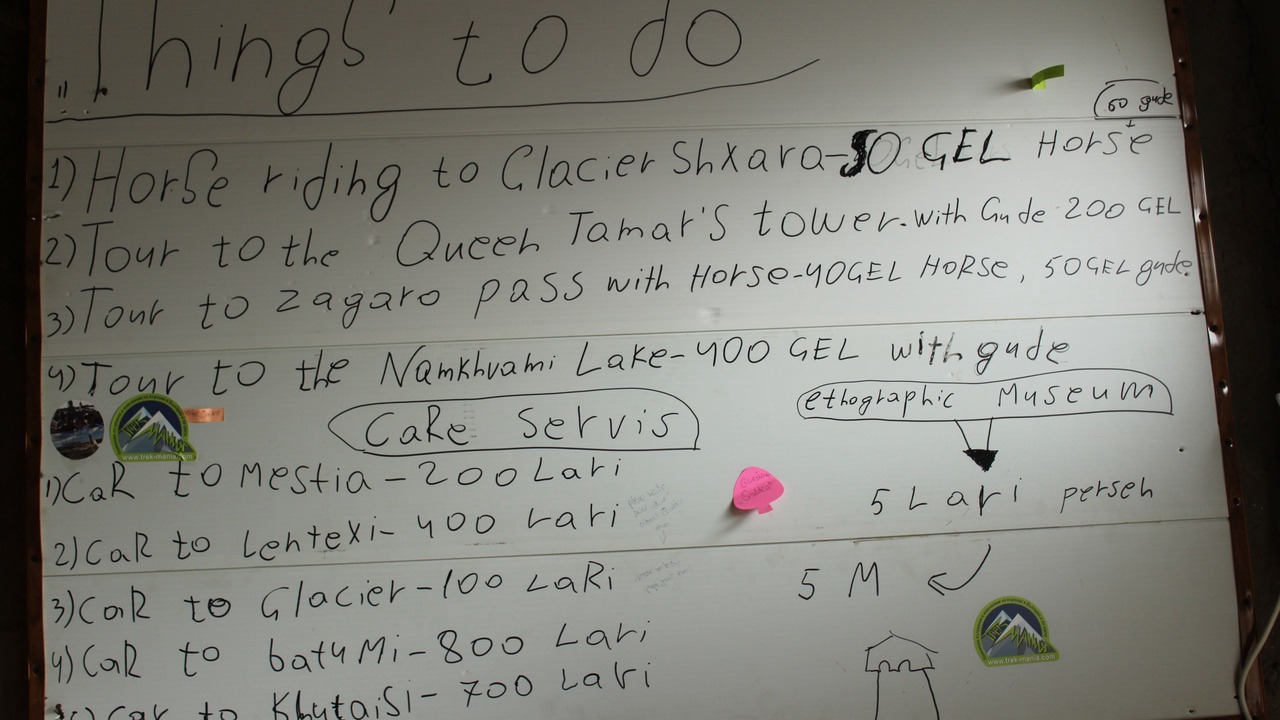 "Things" to do
60 gude
1) Horse riding to Glacier Shxara-50 GEL Horse
2) Tour to the Queen Tamar's tower. with Gude 200 GEL
3) Tour to zagaro pass with Horse-40GEL HORSE, 50GEL gude.
4) Tour to the Namkhvami Lake-400 GEL with gude
CaRe Servis
ethographic Museum
www.trek-mania.com
1) CaR to Mestia-200 Lari
5 Lari perseh
2) CaR to Lentexi-400 Lari
3) CaR to Glacier-100 LaRi
5 M
4) CaR to batuMi-800 Lari
www.trek-mania.com
5) Car to Khutaisi-700 Lari